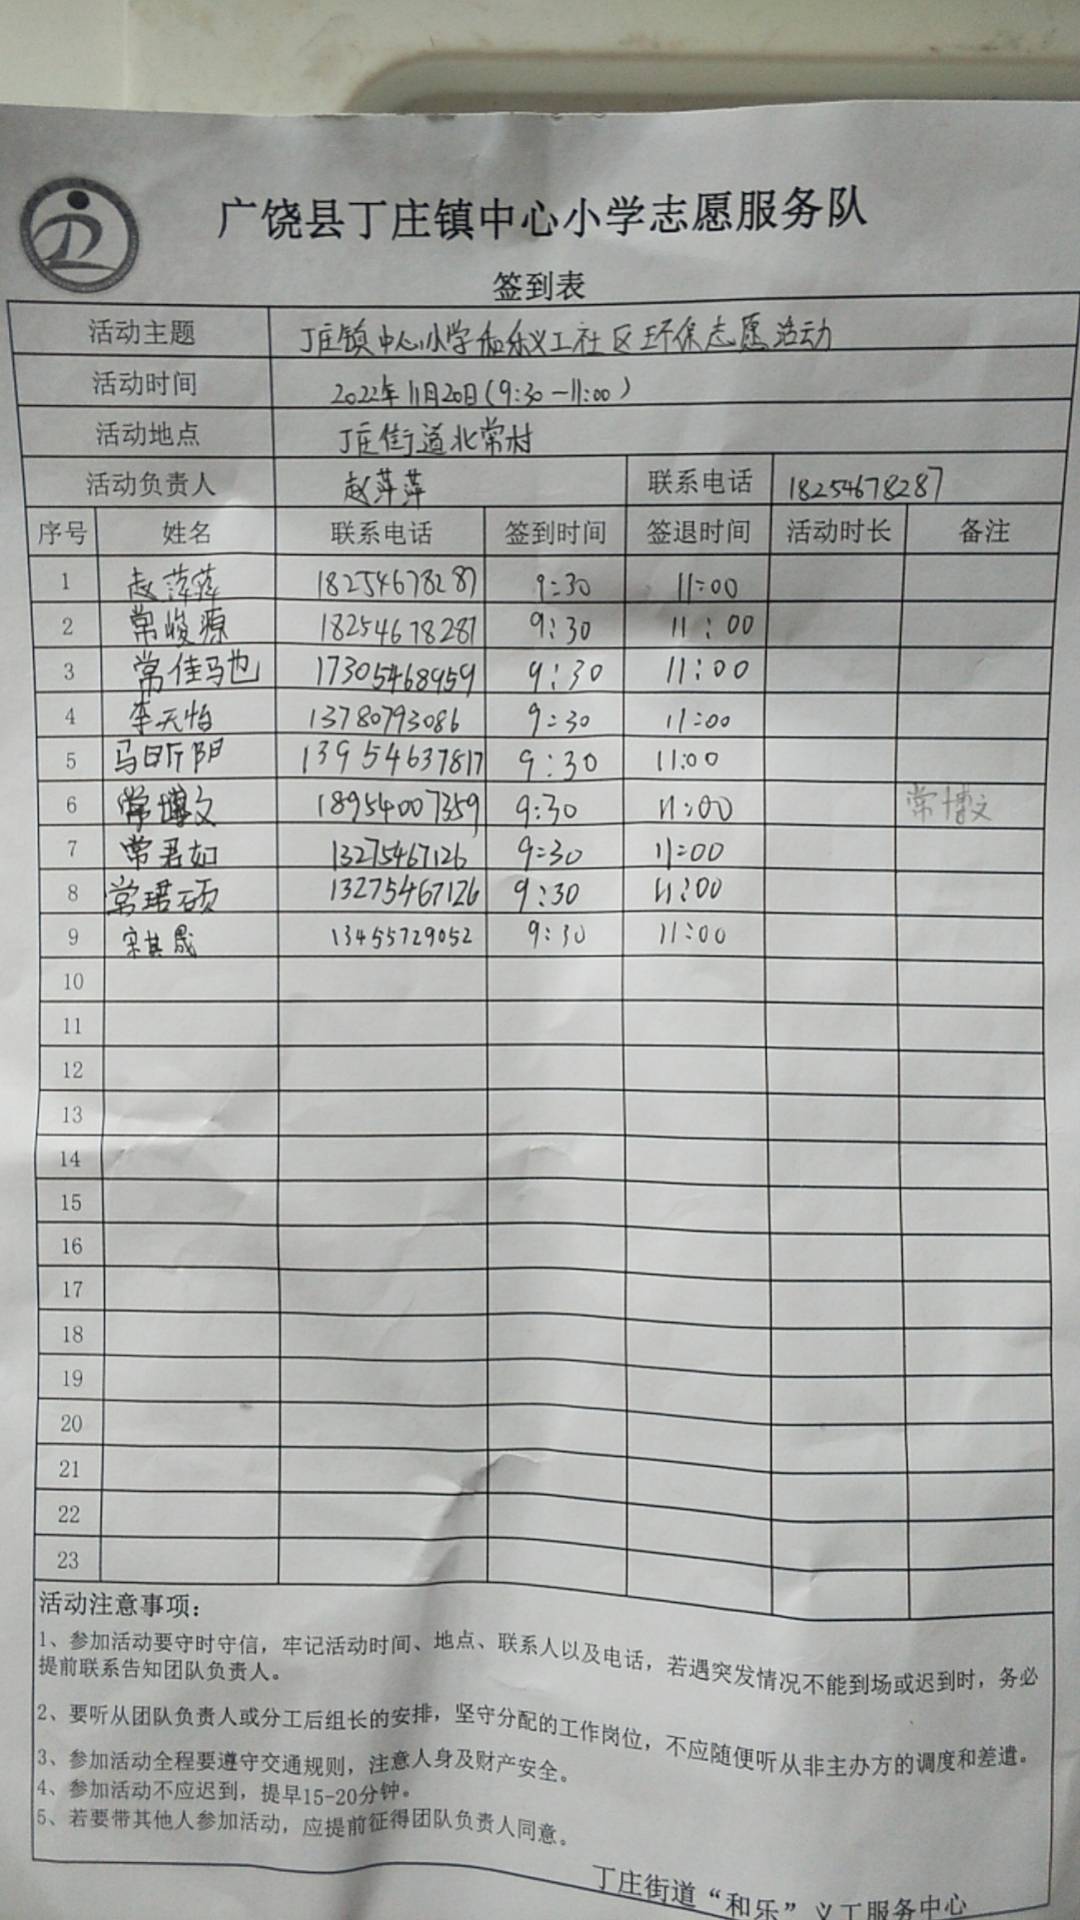 广饶县丁庄镇中心小学志愿服务队
签到表
活动主题 丁庄镇中心小学和乐义工社区环保志愿活动
活动时间 2022年11月20日(9:30-11:00)
活动地点 丁庄街道北常村
活动负责人 赵萍萍 联系电话 18254678287
序号 姓名 联系电话 签到时间 签退时间 活动时长 备注
1 赵萍萍 18254678287 9:30 11:00
2 常峻源 18254678287 9:30 11:00
3 常佳驰 17305468959 9:30 11:00
4 李天怡 13780793086 9:30 11:00
5 马昕阳 13954637817 9:30 11:00
6 常博文 18954007359 9:30 11:00 常博文
7 常君如 13275467126 9:30 11:00
8 常珺硕 13275467126 9:30 11:00
9 宋其晟 13455729052 9:30 11:00
10
11
12
13
14
15
16
17
18
19
20
21
22
23
活动注意事项：
1、参加活动要守时守信，牢记活动时间、地点、联系人以及电话，若遇突发情况不能到场或迟到时，务必
提前联系告知团队负责人。
2、要听从团队负责人或分工后组长的安排，坚守分配的工作岗位，不应随便听从非主办方的调度和差遣。
3、参加活动全程要遵守交通规则，注意人身及财产安全。
4、参加活动不应迟到，提早15-20分钟。
5、若要带其他人参加活动，应提前征得团队负责人同意。
丁庄街道“和乐”义工服务中心